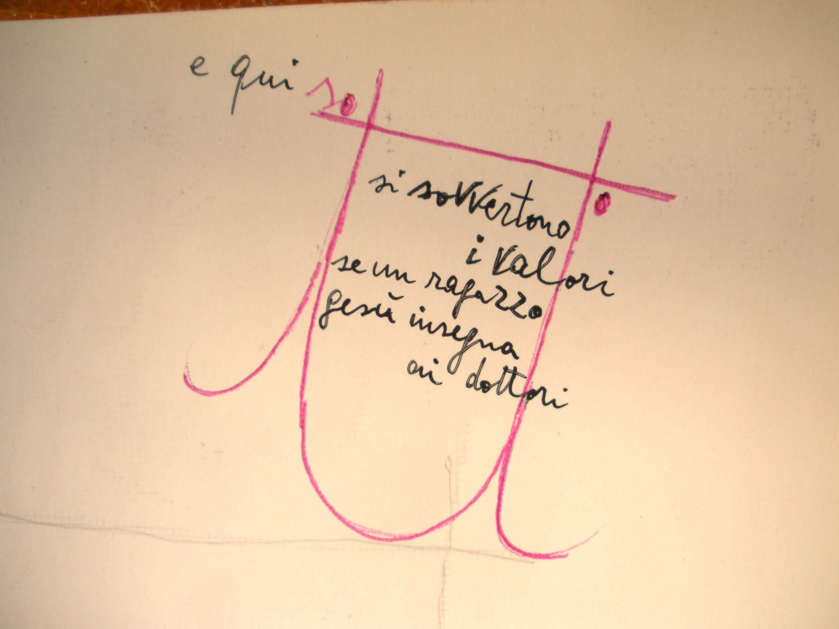 e qui
si sovvertono
i valori
se un ragazzo
gesù insegna
ai dottori